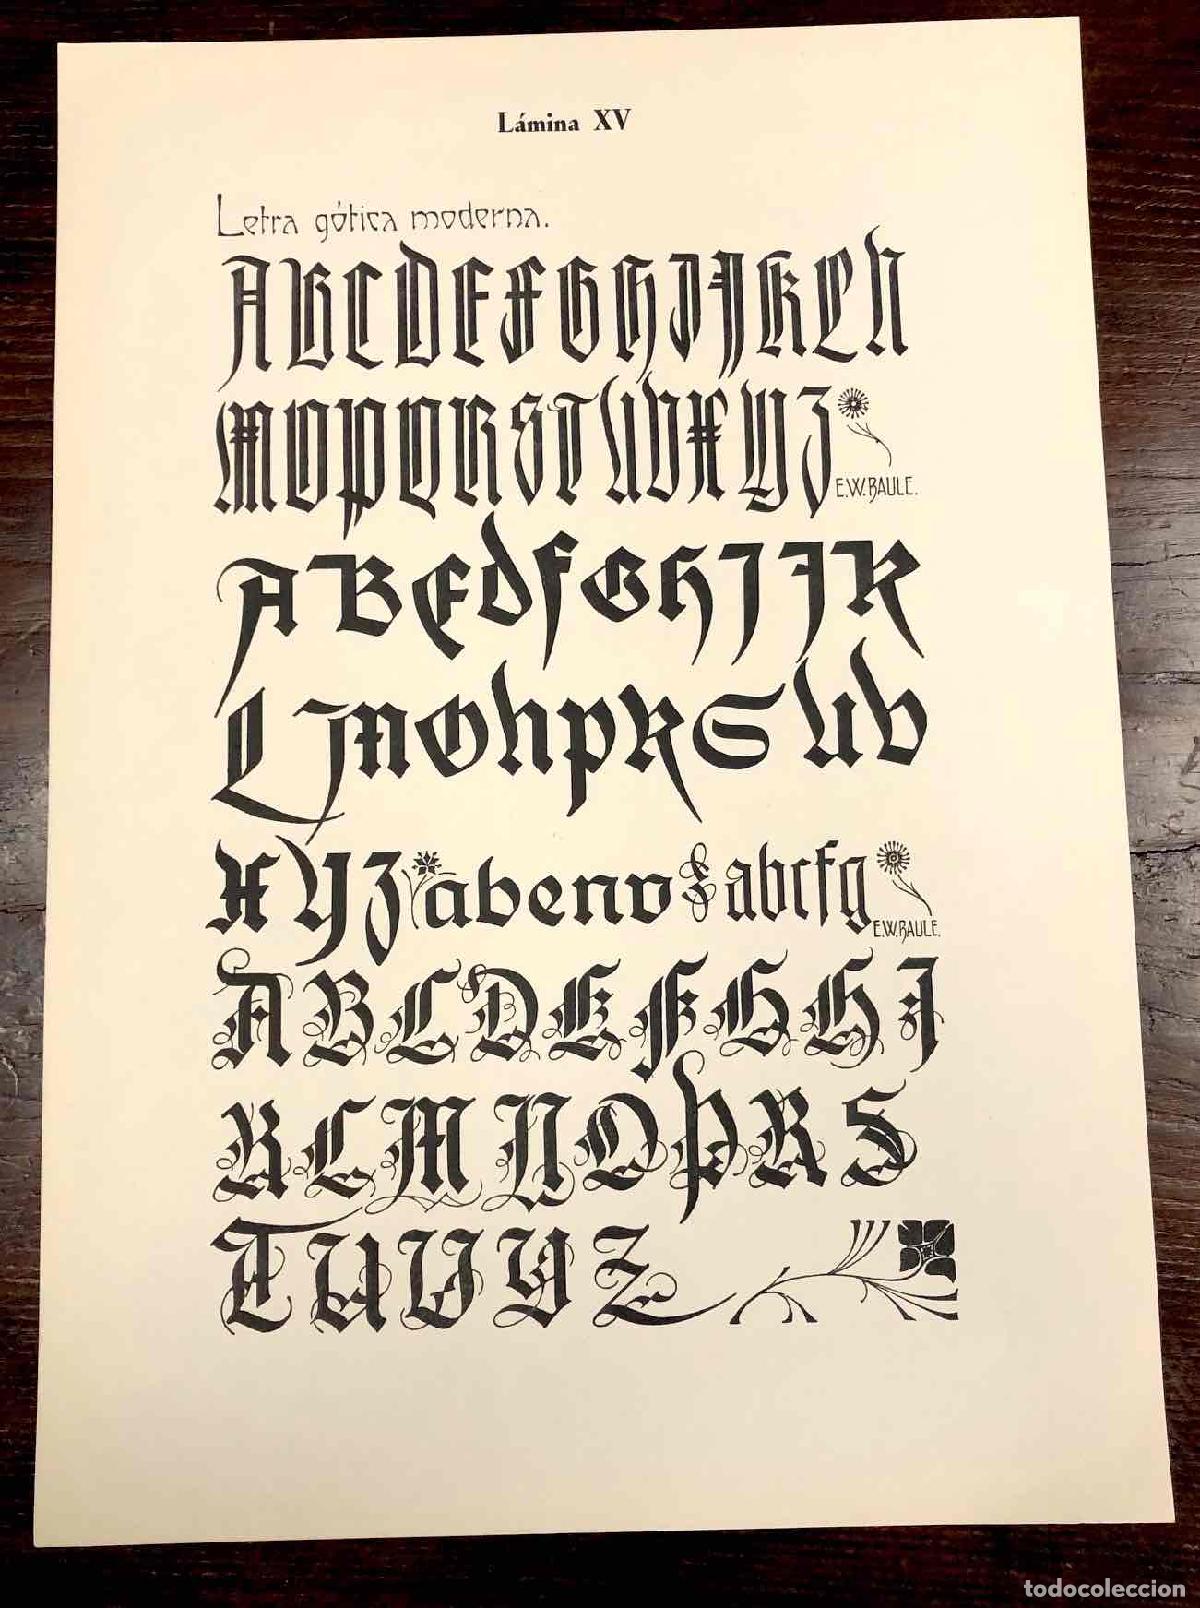 Lámina XV
Letra gótica moderna.
ABCDEFGHIJKLN
MOPQRSTUVXYZ
E.W.BAULE.
ABCEdFGHIJK
LMONPRSUV
XYZ abenv abcfg
E.W.BAULE.
ABCDEFGHI
KLMNOPRS
TUVYZ
todocoleccion